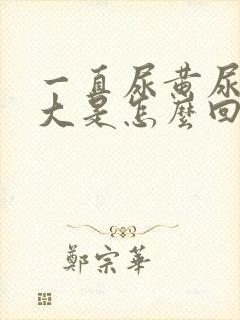 一直尿黄尿
大是怎麼回
鄭宗華